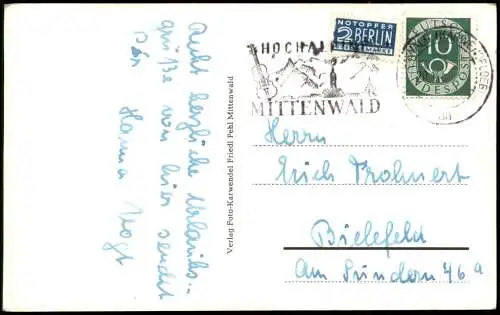 Recht herzliche Urlaubs-
grüße von hier sendet
Dir Hanna Vogt
Verlag Foto-Karwendel Friedl Pehl Mittenwald
NOTOPFER
2 BERLIN
STEUERMARKE
DEUTSCHE
10
BUNDESPOST
HOCHAL
MITTENWALD
Herrn
Erich Trohnert
Bielefeld
Am Sundern 46a